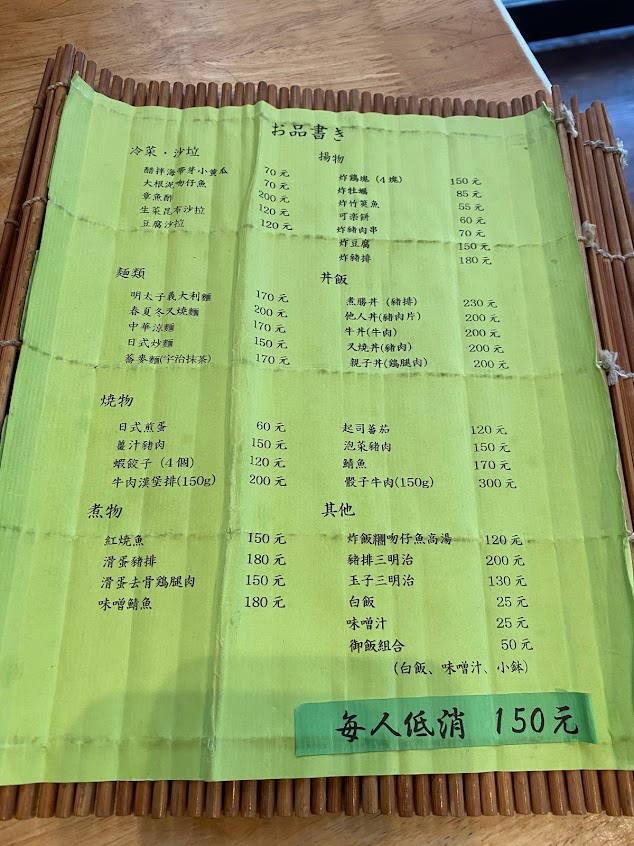 お品書き
冷菜．沙拉
醋拌海帶芽小黃瓜 70元
大根泥吻仔魚 70元
章魚酢 200元
生菜昆布沙拉 120元
豆腐沙拉 120元
揚物
炸鶏塊（4塊） 150元
炸牡蠣 85元
炸竹筴魚 55元
可楽餅 60元
炸豬肉串 70元
炸豆腐 150元
炸豬排 180元
麵類
明太子義大利麵 170元
春夏冬叉燒麵 200元
中華涼麵 170元
日式炒麵 150元
蕎麥麵(宇治抹茶) 170元
丼飯
煮勝丼（豬排） 230元
他人丼(豬肉片) 200元
牛丼(牛肉) 200元
叉燒丼(豬肉) 200元
親子丼(鶏腿肉) 200元
燒物
日式煎蛋 60元
薑汁豬肉 150元
蝦餃子（4個） 120元
牛肉漢堡排(150g) 200元
起司蕃茄 120元
泡菜豬肉 150元
鯖魚 170元
骰子牛肉(150g) 300元
煮物
紅燒魚 150元
滑蛋豬排 180元
滑蛋去骨鶏腿肉 150元
味噌鯖魚 180元
其他
炸飯糰吻仔魚高湯 120元
豬排三明治 200元
玉子三明治 130元
白飯 25元
味噌汁 25元
御飯組合 50元
（白飯、味噌汁、小鉢）
每人低消 150元